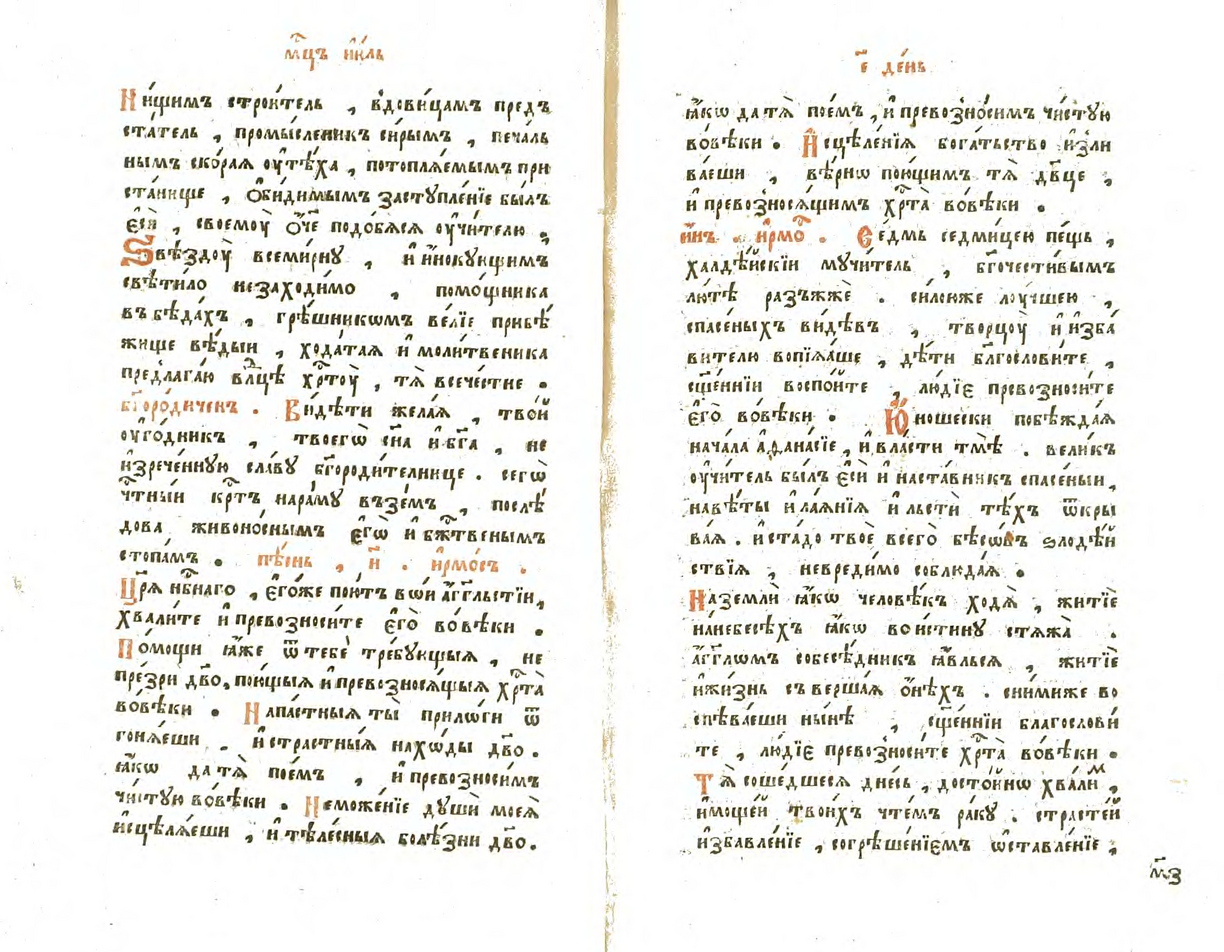 мⷭ҇цъ і҆ю́ль
Ни́щимъ строи́тель , вдови́цамъ предъ
ста́тель , промы́сленикъ си́рымъ , печаль
нымъ ско́рая ᲂу҆тѣ́ха , потопля́емымъ при
ста́нище , ѻ҆би́димымъ заступле́нїе бы́лъ
є҆сѝ , своемꙋ̀ ѻ҆́ч҃е подо́бяся ᲂу҆чи́телю .
Ѕвѣздꙋ̀ всеми́рнꙋ , и҆ и҆́нокꙋющимъ
свѣти́ло незаходи́мо , помо́щника
въ бѣда́хъ , грѣ́шникѡмъ ве́лїе прибѣ́
жище вѣ́дыи , хода́тая и҆ моли́твеника
предлага́ю влⷣцѣ хрⷭ҇тꙋ̀ , тѧ̀ всече́стне .
бг҃оро́диченъ . Ви́дѣти жела́я , тво́й
ᲂу҆го́дникъ , твоегѡ̀ сн҃а и҆ бг҃а , не
и҆зрече́ннꙋю сла́вꙋ бг҃ороди́телнице . сегѡ̀
чтⷭ҇ны́й крⷭ҇тъ на ра́мꙋ възе́мъ , послѣ́
дова живоно́снымъ є҆гѡ̀ и҆ бж҃тⷭ҇венымъ
стопа́мъ . пѣ́снь , и҃ . і҆рмо́съ .
Цр҃ѧ̀ нбⷭ҇наго , є҆го́же пою́тъ во́и а҆́гг҃льстїи,
хвали́те и҆ превозноси́те є҆го̀ во́вѣки .
По́мощи ꙗ҆́же ѿ тебѐ тре́бꙋющыѧ , не
пре́зри дв҃о, пою́щыѧ и҆ превознося́щыѧ хрⷭ҇та̀
во́вѣки . Напа́стныѧ ты̀ прило́ги ѿ
гоня́еши . и҆ стра́стныѧ нахо́ды дв҃о .
ꙗ҆́кѡ да тѧ̀ пое́мъ , и҆ превозно́симъ
чи́стꙋю во́вѣки . Неможе́нїе дꙋшѝ моеѧ̀
и҆сцѣля́еши , и҆ тѣле́сныѧ болѣ́зни дв҃о.
є҃ де́нь
ꙗ҆́кѡ да тѧ̀ пое́мъ , и҆ превозно́симъ чи́стꙋю
во́вѣки . И҆сцѣле́нїѧ бога́тьство и҆зли
ва́еши , вѣ́рнѡ пою́щимъ тѧ̀ дв҃це ,
и҆ превозносѧ́щимъ хрⷭ҇та̀ во́вѣки .
и҆́нъ . і҆рмоⷭ҇ . Се́дмь седми́цею пе́щь ,
халде́йскїи мꙋчи́тель , бг҃очести́вымъ
лю́тѣ разъжжѐ . си́лоюже лꙋ́чшею ,
спасе́ныхъ ви́дѣвъ , творцꙋ̀ и҆ и҆зба́
вителю вопїѧ́ше , дѣ́ти благослови́те ,
сщ҃е́ннїи воспо́йте , лю́дїе превозноси́те
є҆го̀ во́вѣки . Ю҆́ношески побѣжда́я
нача́ла а҆ѳана́сїе , и҆ вла́сти тмѣ̀ . вели́къ
ᲂу҆чи́тель бы́лъ є҆сѝ и҆ наста́вникъ спасе́ныи,
навѣ́ты и҆ лая́нїѧ и҆ льсти́ тѣ́хъ ѿкры
ва́я . и҆ ста́до твоѐ всего̀ бѣсѡ́въ ѕлодѣ́й
ствїѧ , невреди́мо соблюда́я .
На землѝ ꙗ҆́кѡ человѣ́къ ходѧ̀ , житїѐ
на небесѣ́хъ ꙗ҆́кѡ вои́стинꙋ стѧжа̀ .
а҆́гг҃лѡмъ собесѣ́дникъ ꙗ҆ви́лься , житїѐ
и҆ жи́знь съверша́я ѻ҆нѣ́хъ . сни́миже во
спѣва́еши ны́нѣ , сщ҃е́ннїи благослови́
те , лю́дїе превозноси́те хрⷭ҇та̀ во́вѣки .
Тѧ̀ соше́дшеся дне́сь , досто́йнѡ хва́лиⷨ ,
и҆ моще́й твои́хъ чте́мъ ра́кꙋ . страсте́й
и҆збавле́нїе , согрѣше́нїемъ ѡ҆ставле́нїе ,
м҃з